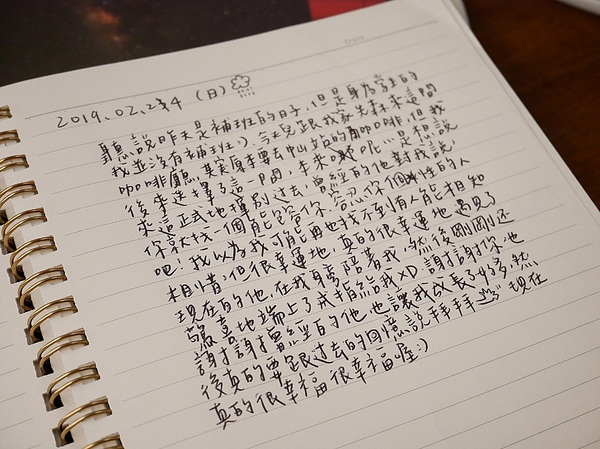 Date
2019.02.24 (日)
聽說昨天是補班的日子,但是身為學生的
我並沒有補班:)今天兒跟我家先森來這間
咖啡廳,其實原本要去中山站的咖啡,但我
後來選擇了這一間,本來呢…是想說
來這正式地揮別過去,曾經的他對我說
你就找一個能包容你、忍你個性的人
吧,我以為我可能再也找不到有人能相知
相惜,但很幸運地,真的很幸運地遇見了
現在的他,在我身旁陪著我,然後剛剛還
驚喜地端上了戒指給我XD,謝謝你,也
謝謝曾經的他,也讓我成長了好多,然
後真的要跟過去的回憶說拜拜 現在
真的很幸福很幸福喔:)